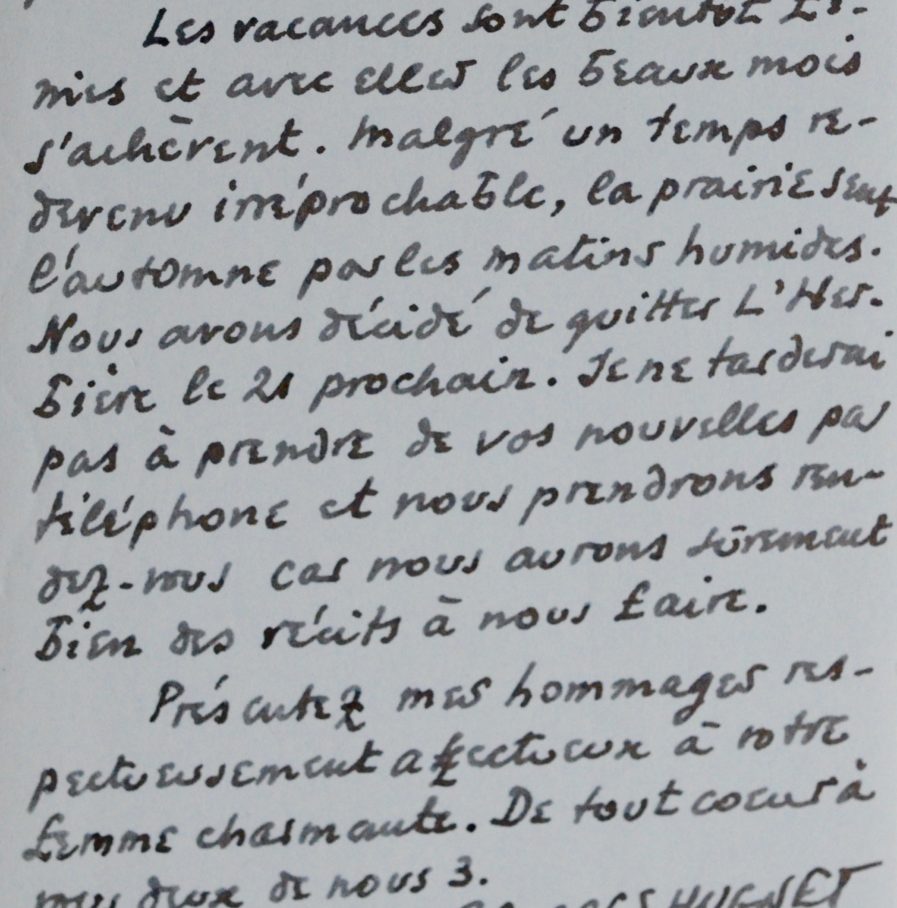 Les vacances sont bientôt fi-
nies et avec elles les beaux mois
s'achèvent. Malgré un temps re-
devenu irréprochable, la prairie sent
l'automne par les matins humides.
Nous avons décidé de quitter L'Her-
bière le 21 prochain. Je ne tarderai
pas à prendre de vos nouvelles par
téléphone et nous prendrons ren-
dez-vous car nous aurons sûrement
bien des récits à nous faire.
Présentez mes hommages res-
pectueusement affectueux à votre
femme charmante. De tout coeur à
vous deux de nous 3.
HUGNET